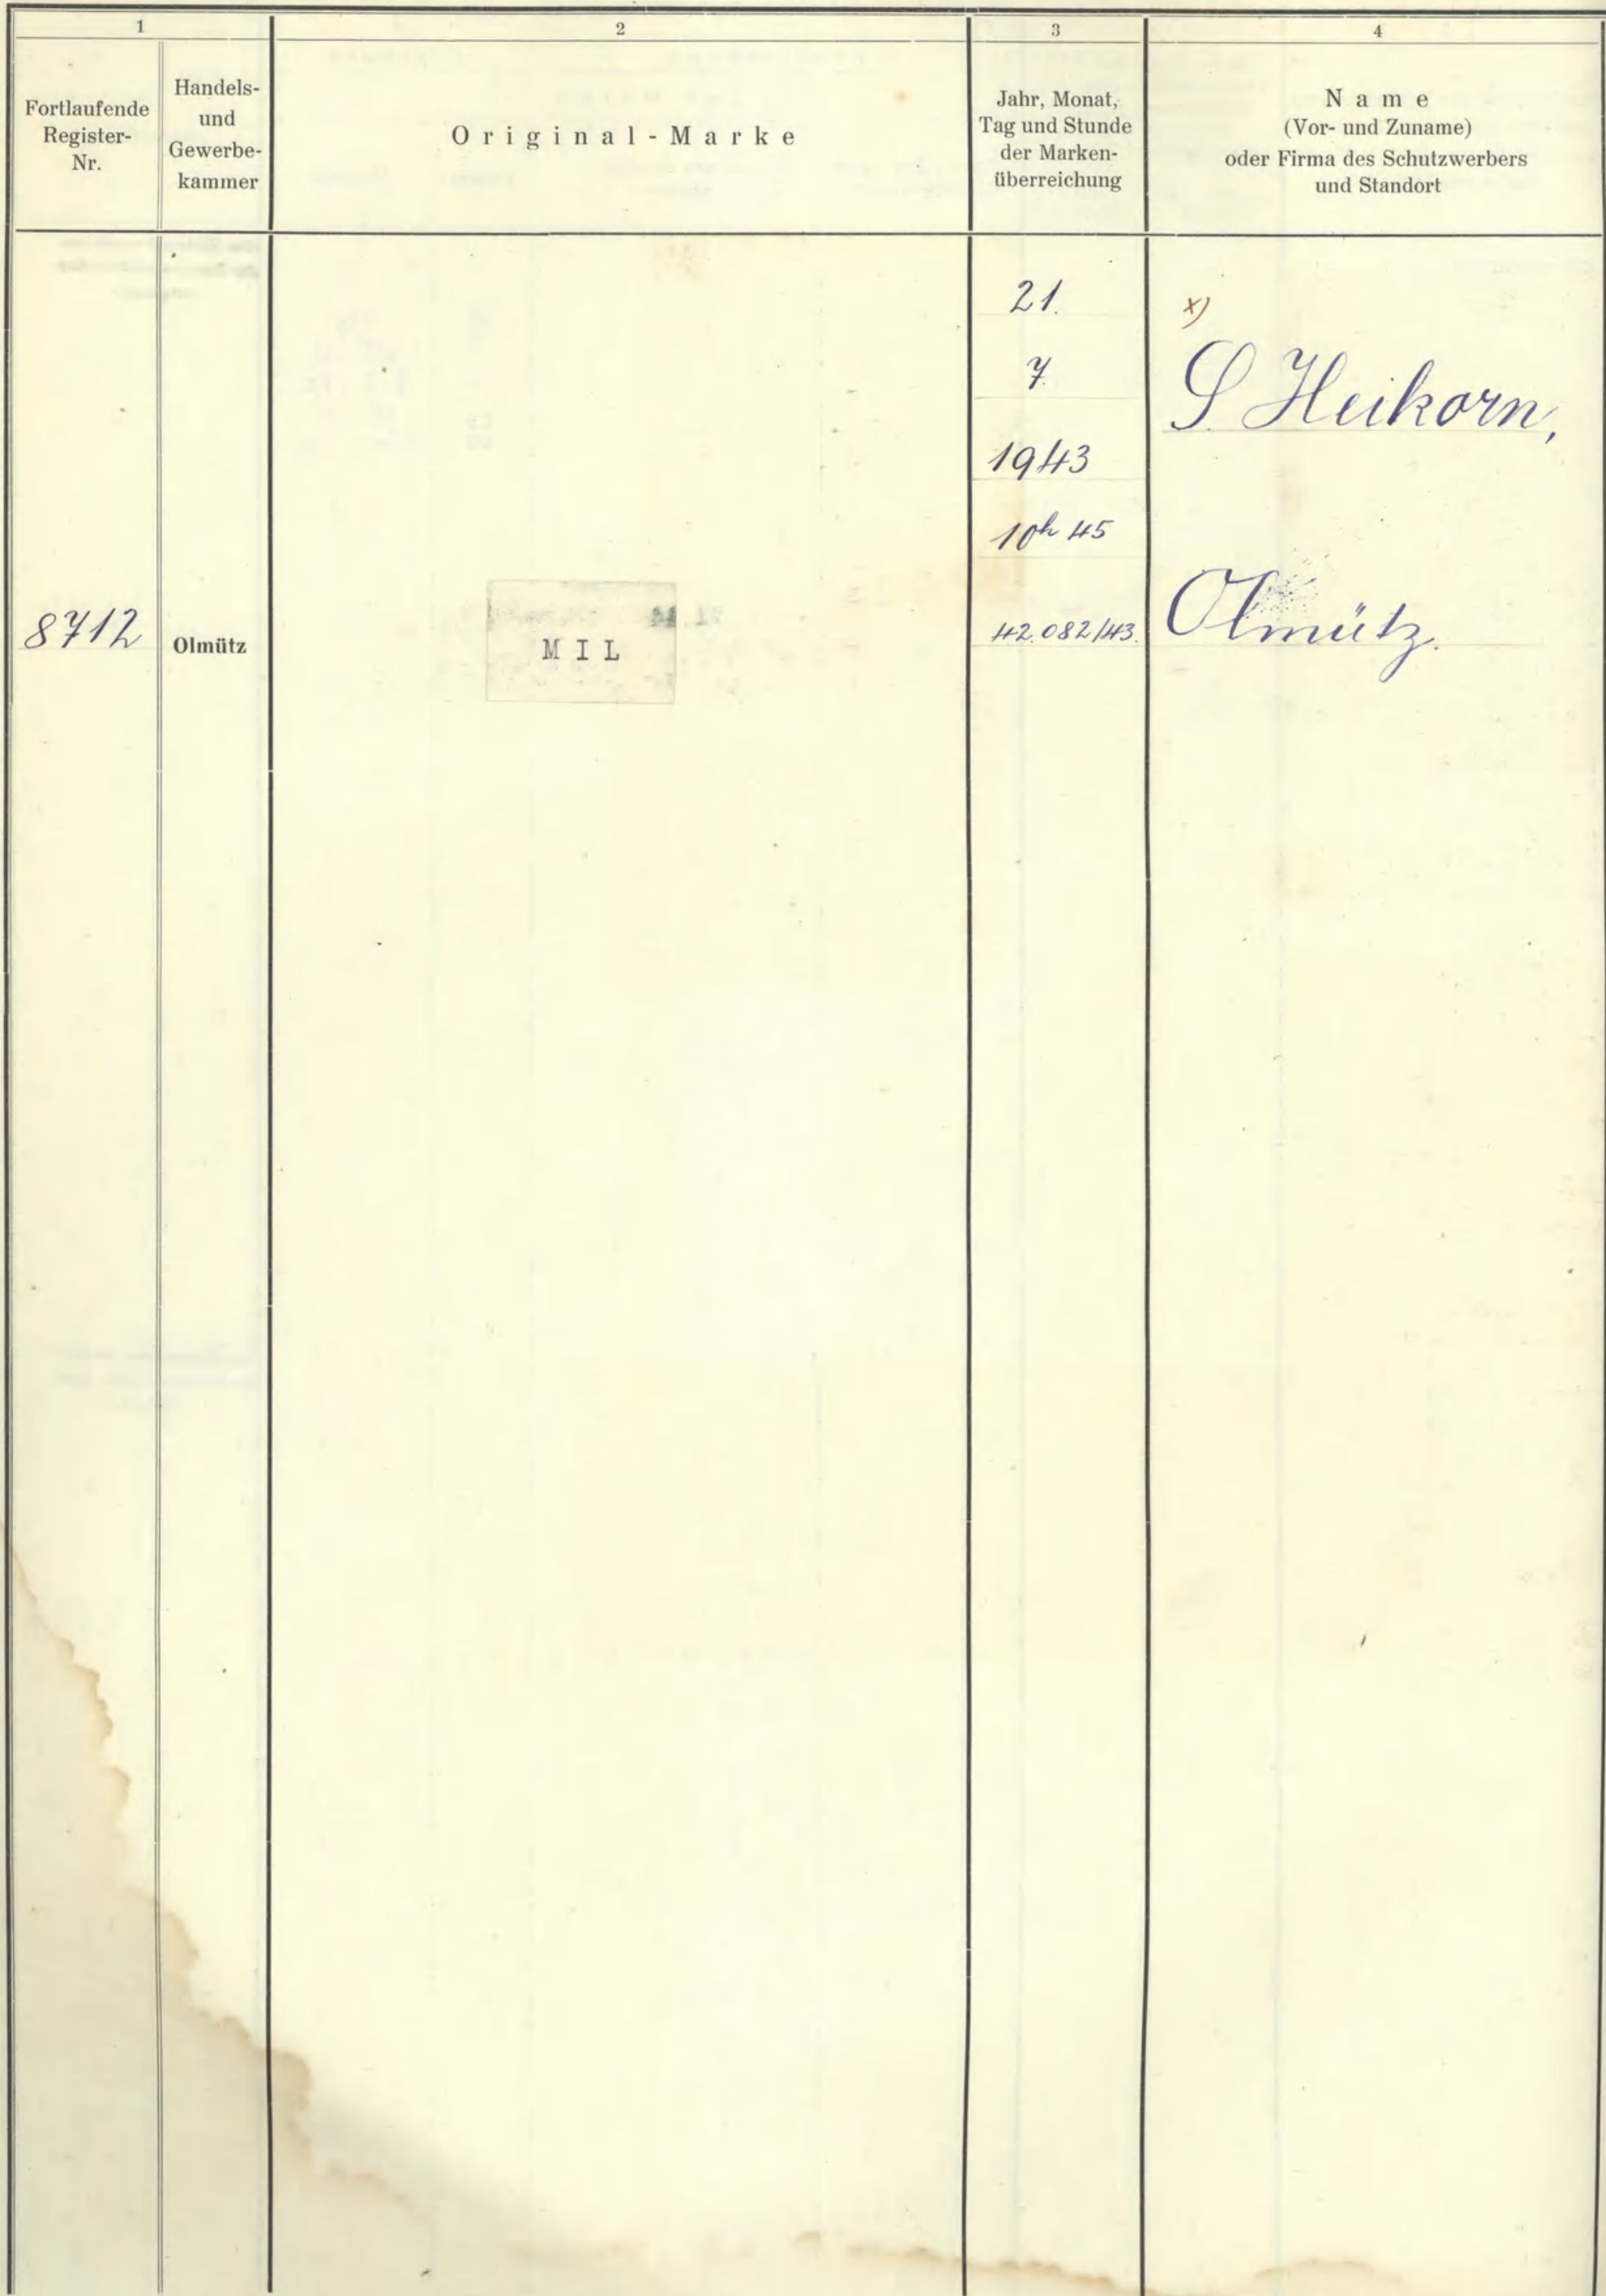 1
2
3
4
Fortlaufende
Register-
Nr.
Handels-
und
Gewerbe-
kammer
Original-Marke
Jahr, Monat,
Tag und Stunde
der Marken-
überreichung
Name
(Vor- und Zuname)
oder Firma des Schutzwerbers
und Standort
8712
Olmütz
MIL
21.
7.
1943
10h 45
42.082/43.
x)
S. Heikorn,
Olmütz.